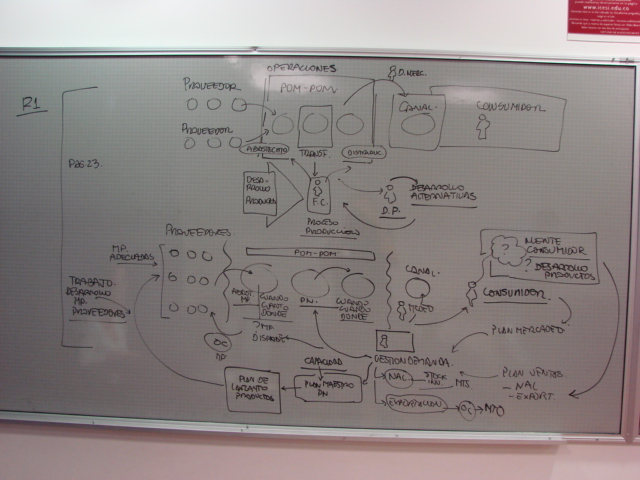 www.icesi.edu.co
R1
PAG 23.
OPERACIONES
PROVEEDOR
POM-POM
D. MERC.
CANAL
CONSUMIDOR
PROVEEDOR
ABASTECMTO
TRANSF.
DISTRIBUC
DESA-
RROLLO
PRODUCTOS
F.C.
PROCESO
PRODUCCION
D.P.
DESARROLLO
ALTERNATIVAS
PROVEEDORES
MP.
ADECUADAS
POM-POM
MENTE
CONSUMIDOR
?
DESARROLLO
PRODUCTOS
CANAL
CONSUMIDOR
TRABAJO
DESARROLLO
MP.
PROVEEDORES
ABAST
MP
CUANDO
CUANTO
DONDE
PN.
CUANDO
CUANTO
DONDE
MCDEO
PLAN MERCADEO
OC
MP
? MP
DISPONIB
GESTION DEMANDA.
CAPACIDAD
PLAN DE
PRODUCTOS
PLAN MAESTRO
PN
NAL
STOCK
INV.
MTS
PLAN VENTAS
- NAL
- EXPORT.
EXPORTACION
OC
MTO